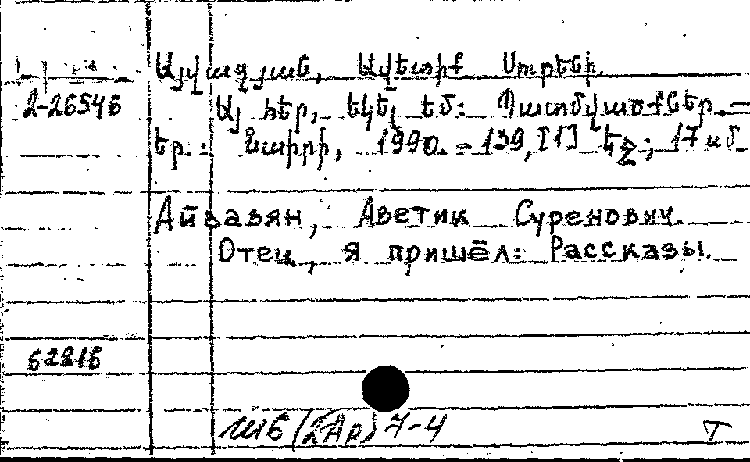 Այվազյան, Ավետիք Սուրենի.
2-26546 Այ հեր, եկել եմ: Պատմվածքներ. –
Եր.: Նաիրի, 1990. – 139,[1] եջ; 17 սմ.
Айвазян, Аветик Суренович.
Отец, я пришёл: Рассказы.
6281б
Ш6(2Ар)7-4 Т